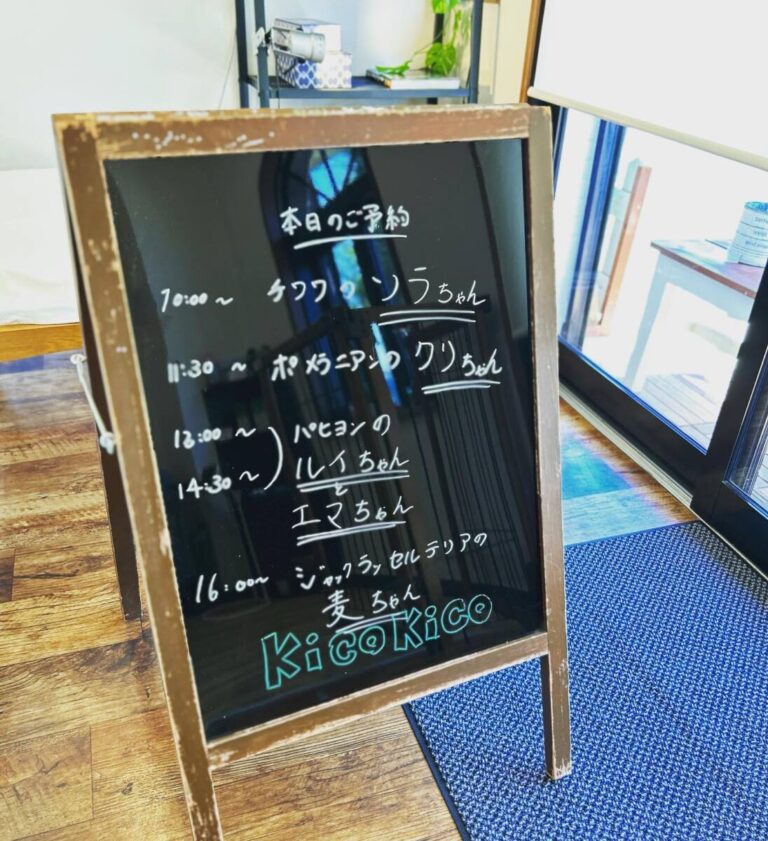 本日のご予約
10:00～ チワワの ソラちゃん
11:30 ～ ポメラニアンの クリちゃん
13:00 ～ パピヨンの
14:30～ ルイちゃん
と
エマちゃん
16:00～ ジャックラッセルテリアの
麦ちゃん
KicoKico